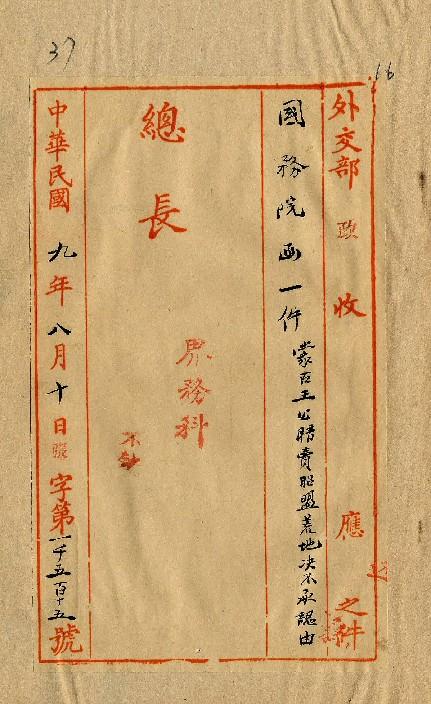 37
16
外交部 政 收 應 之件
國務院函一件 蒙古王公賭賣昭盟荒地決不承認由
總長
界務科
不鈔
中華民國九年八月十日 字第一千五百十五號